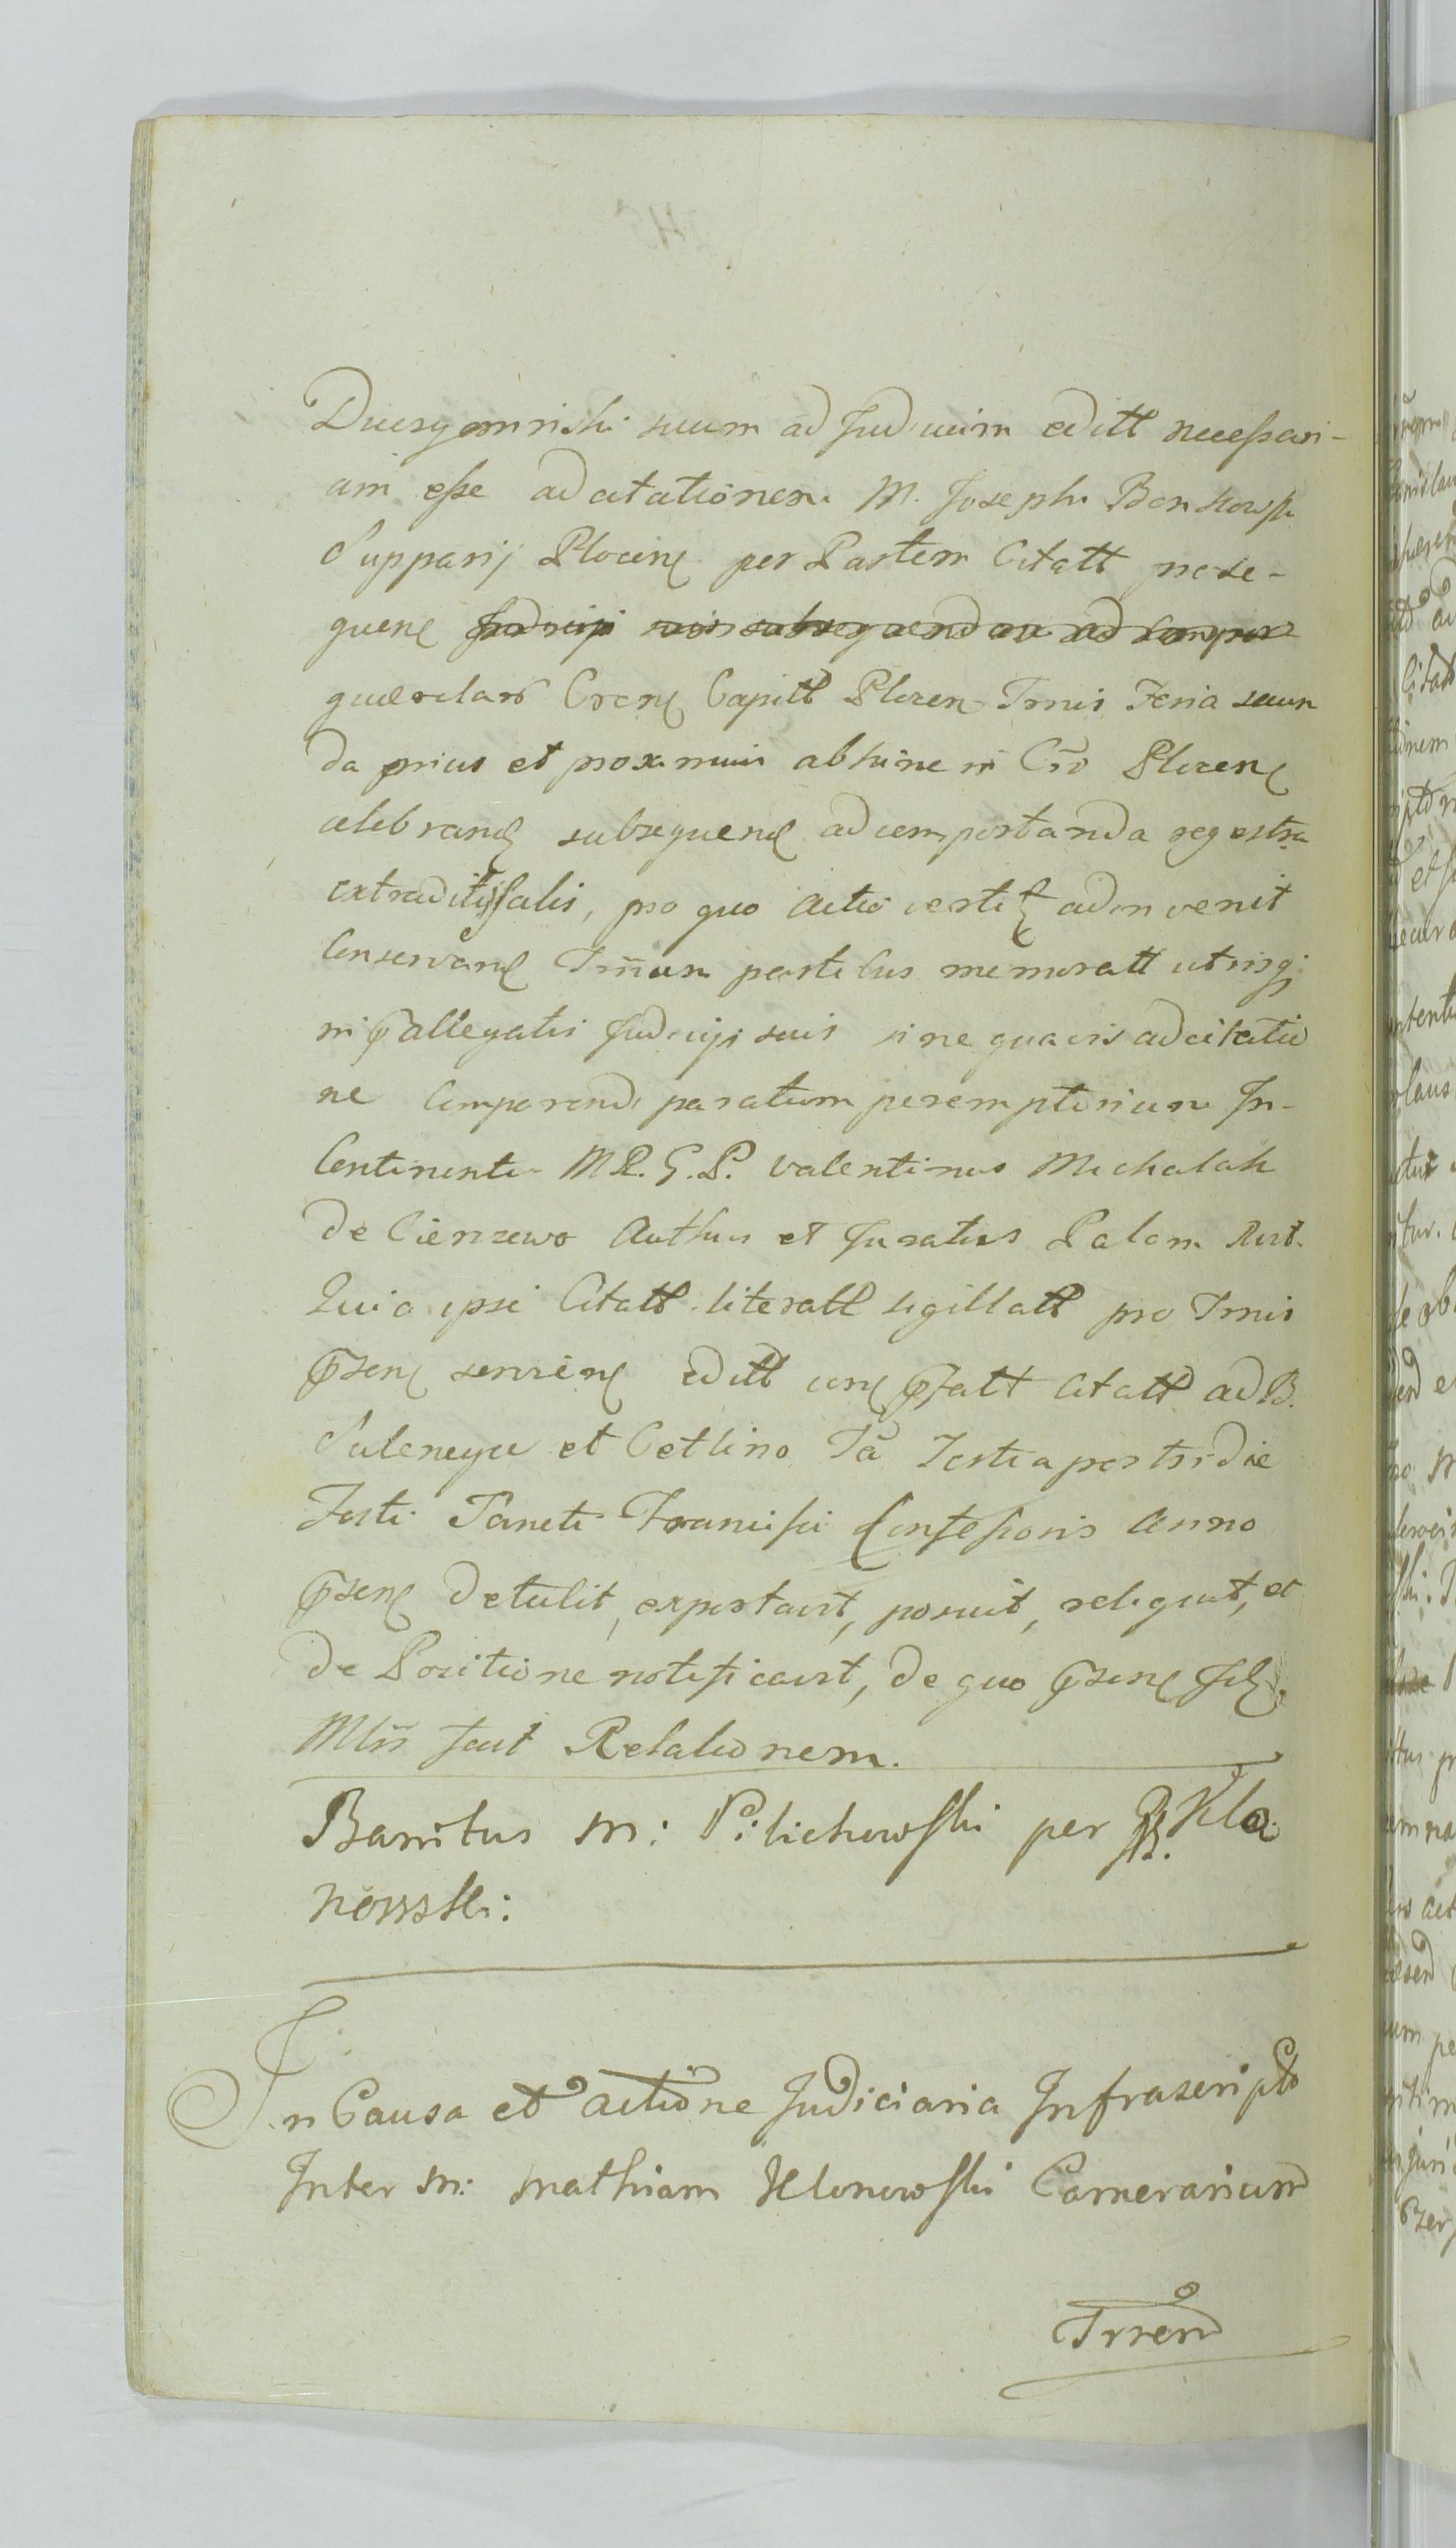 suum ad Judicium editt necessari-
am esse adcitationem M. Josephi Bonkowski
Supparij Plocen per Partem Citatt prose-
quen
querelar Cren Capitl Plocen Trnis Feria secun
da prius et proxime abhinc in Cro Plocen
celebrand subsequend ad comportanda regestra
extraditi salis, pro quo actio vertit adinvenit
Conservand Trnum partibus memoratt utrisq;
in pallegatis Judicijs suis sine quavis adcitatio
ne Comparendi paratum peremptorium In-
Continenti M R. G. P. Valentinus Michalak
de Cienzewo Authus et Juratus Palam Rect.
Quia ipse Citatt literatt sigillatt pro Trnis
Psen servien editt con Pfatt Citatt ad B.
et Cetlino Fa Tertia postridie
Festi Sancti Francisci Confessoris Anno
Psen detulit, exportavit, posuit, reliquit, et
de Positione notificavit, de quo Psen
Mtri fecit Relationem.
Banitus M: Pilichowski per Klo
nowski:
In Causa et actione Judiciaria Infrascripto
Inter M: Mathiam Klonowski Camerarium
Trren